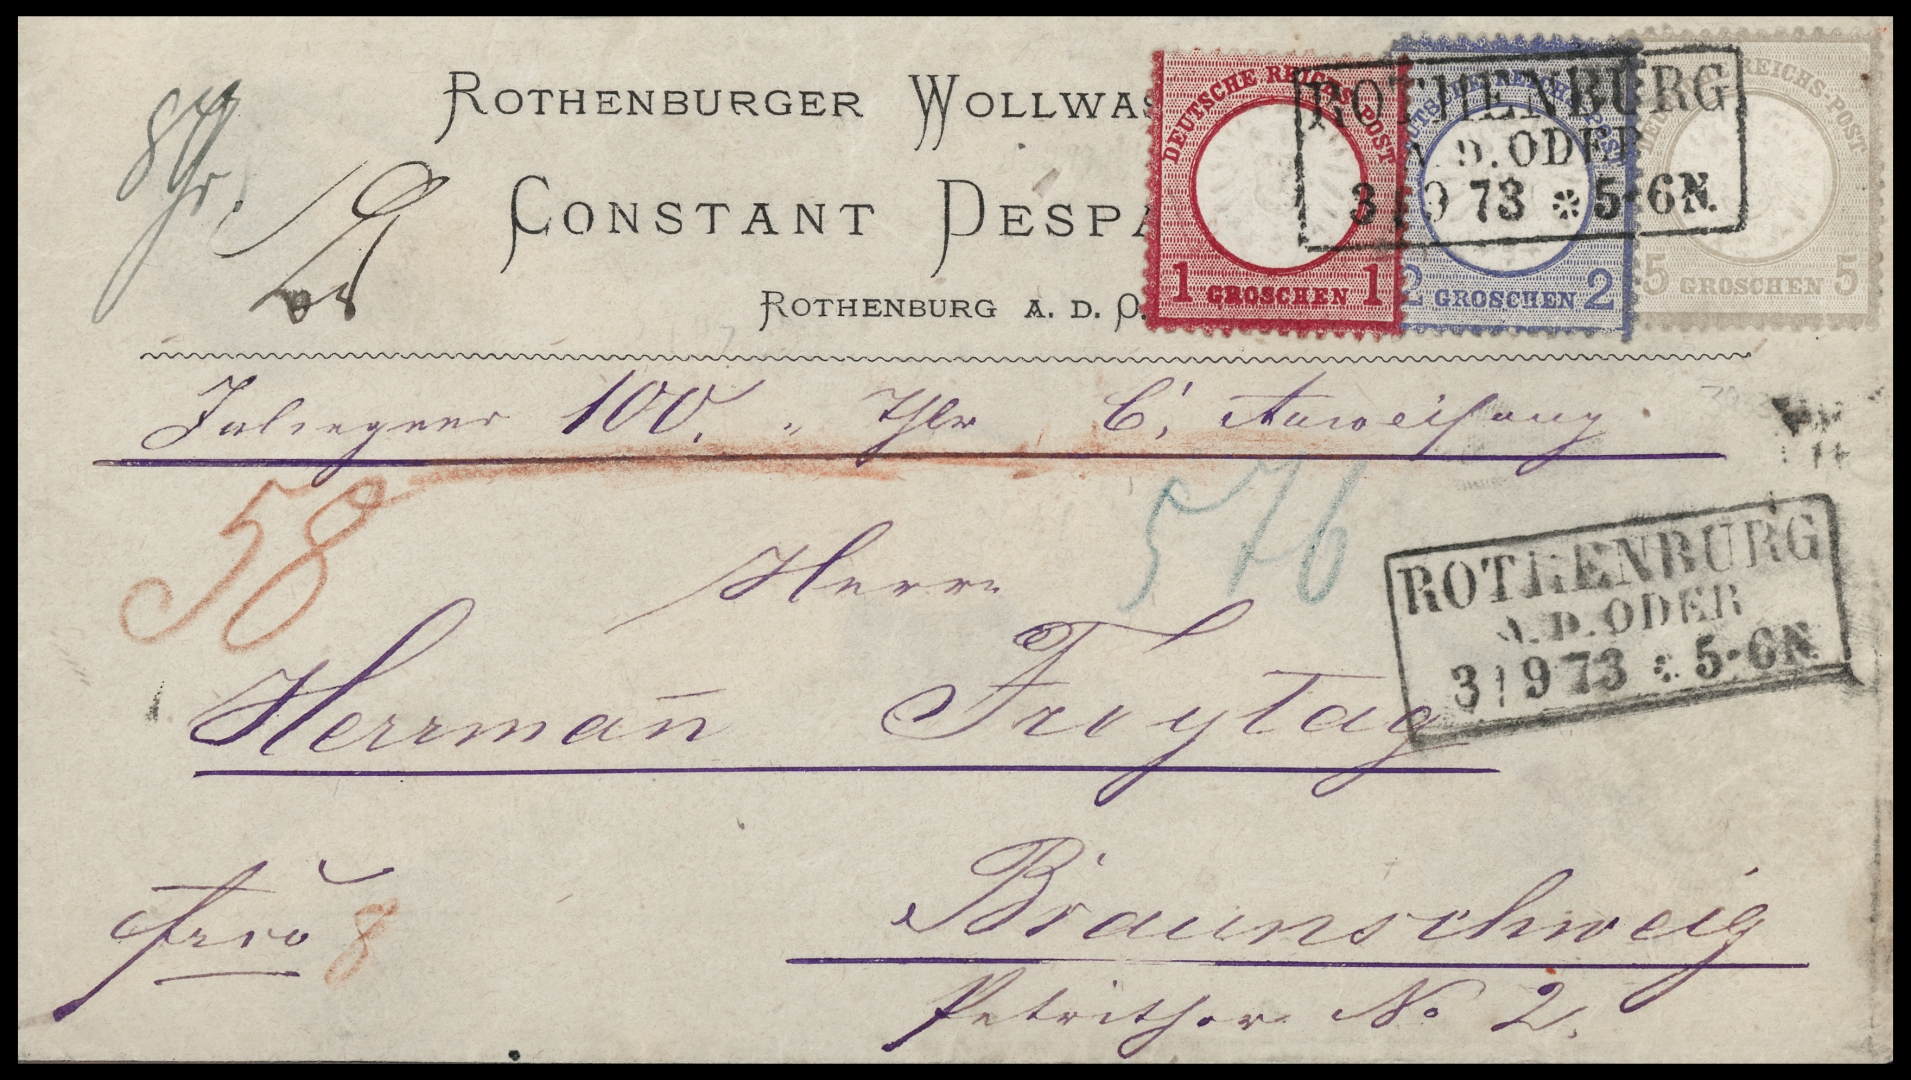 ROTHENBURGER WOLLWAS
CONSTANT DESPA
ROTHENBURG A. D. O.
DEUTSCHE REICHS-POST
1 GROSCHEN 1
2 GROSCHEN 2
REICHS-POST
5 GROSCHEN 5
ROTHENBURG
A. D. ODER
3 9 73 5-6N.
8 Gr.
100. Thlr C. Anweisung
58
576
Herrn
Herrman̄ Freytag
ROTHENBURG
A. D. ODER
3 9 73 5-6N.
8
Braunschweig
Petrithor No 2.